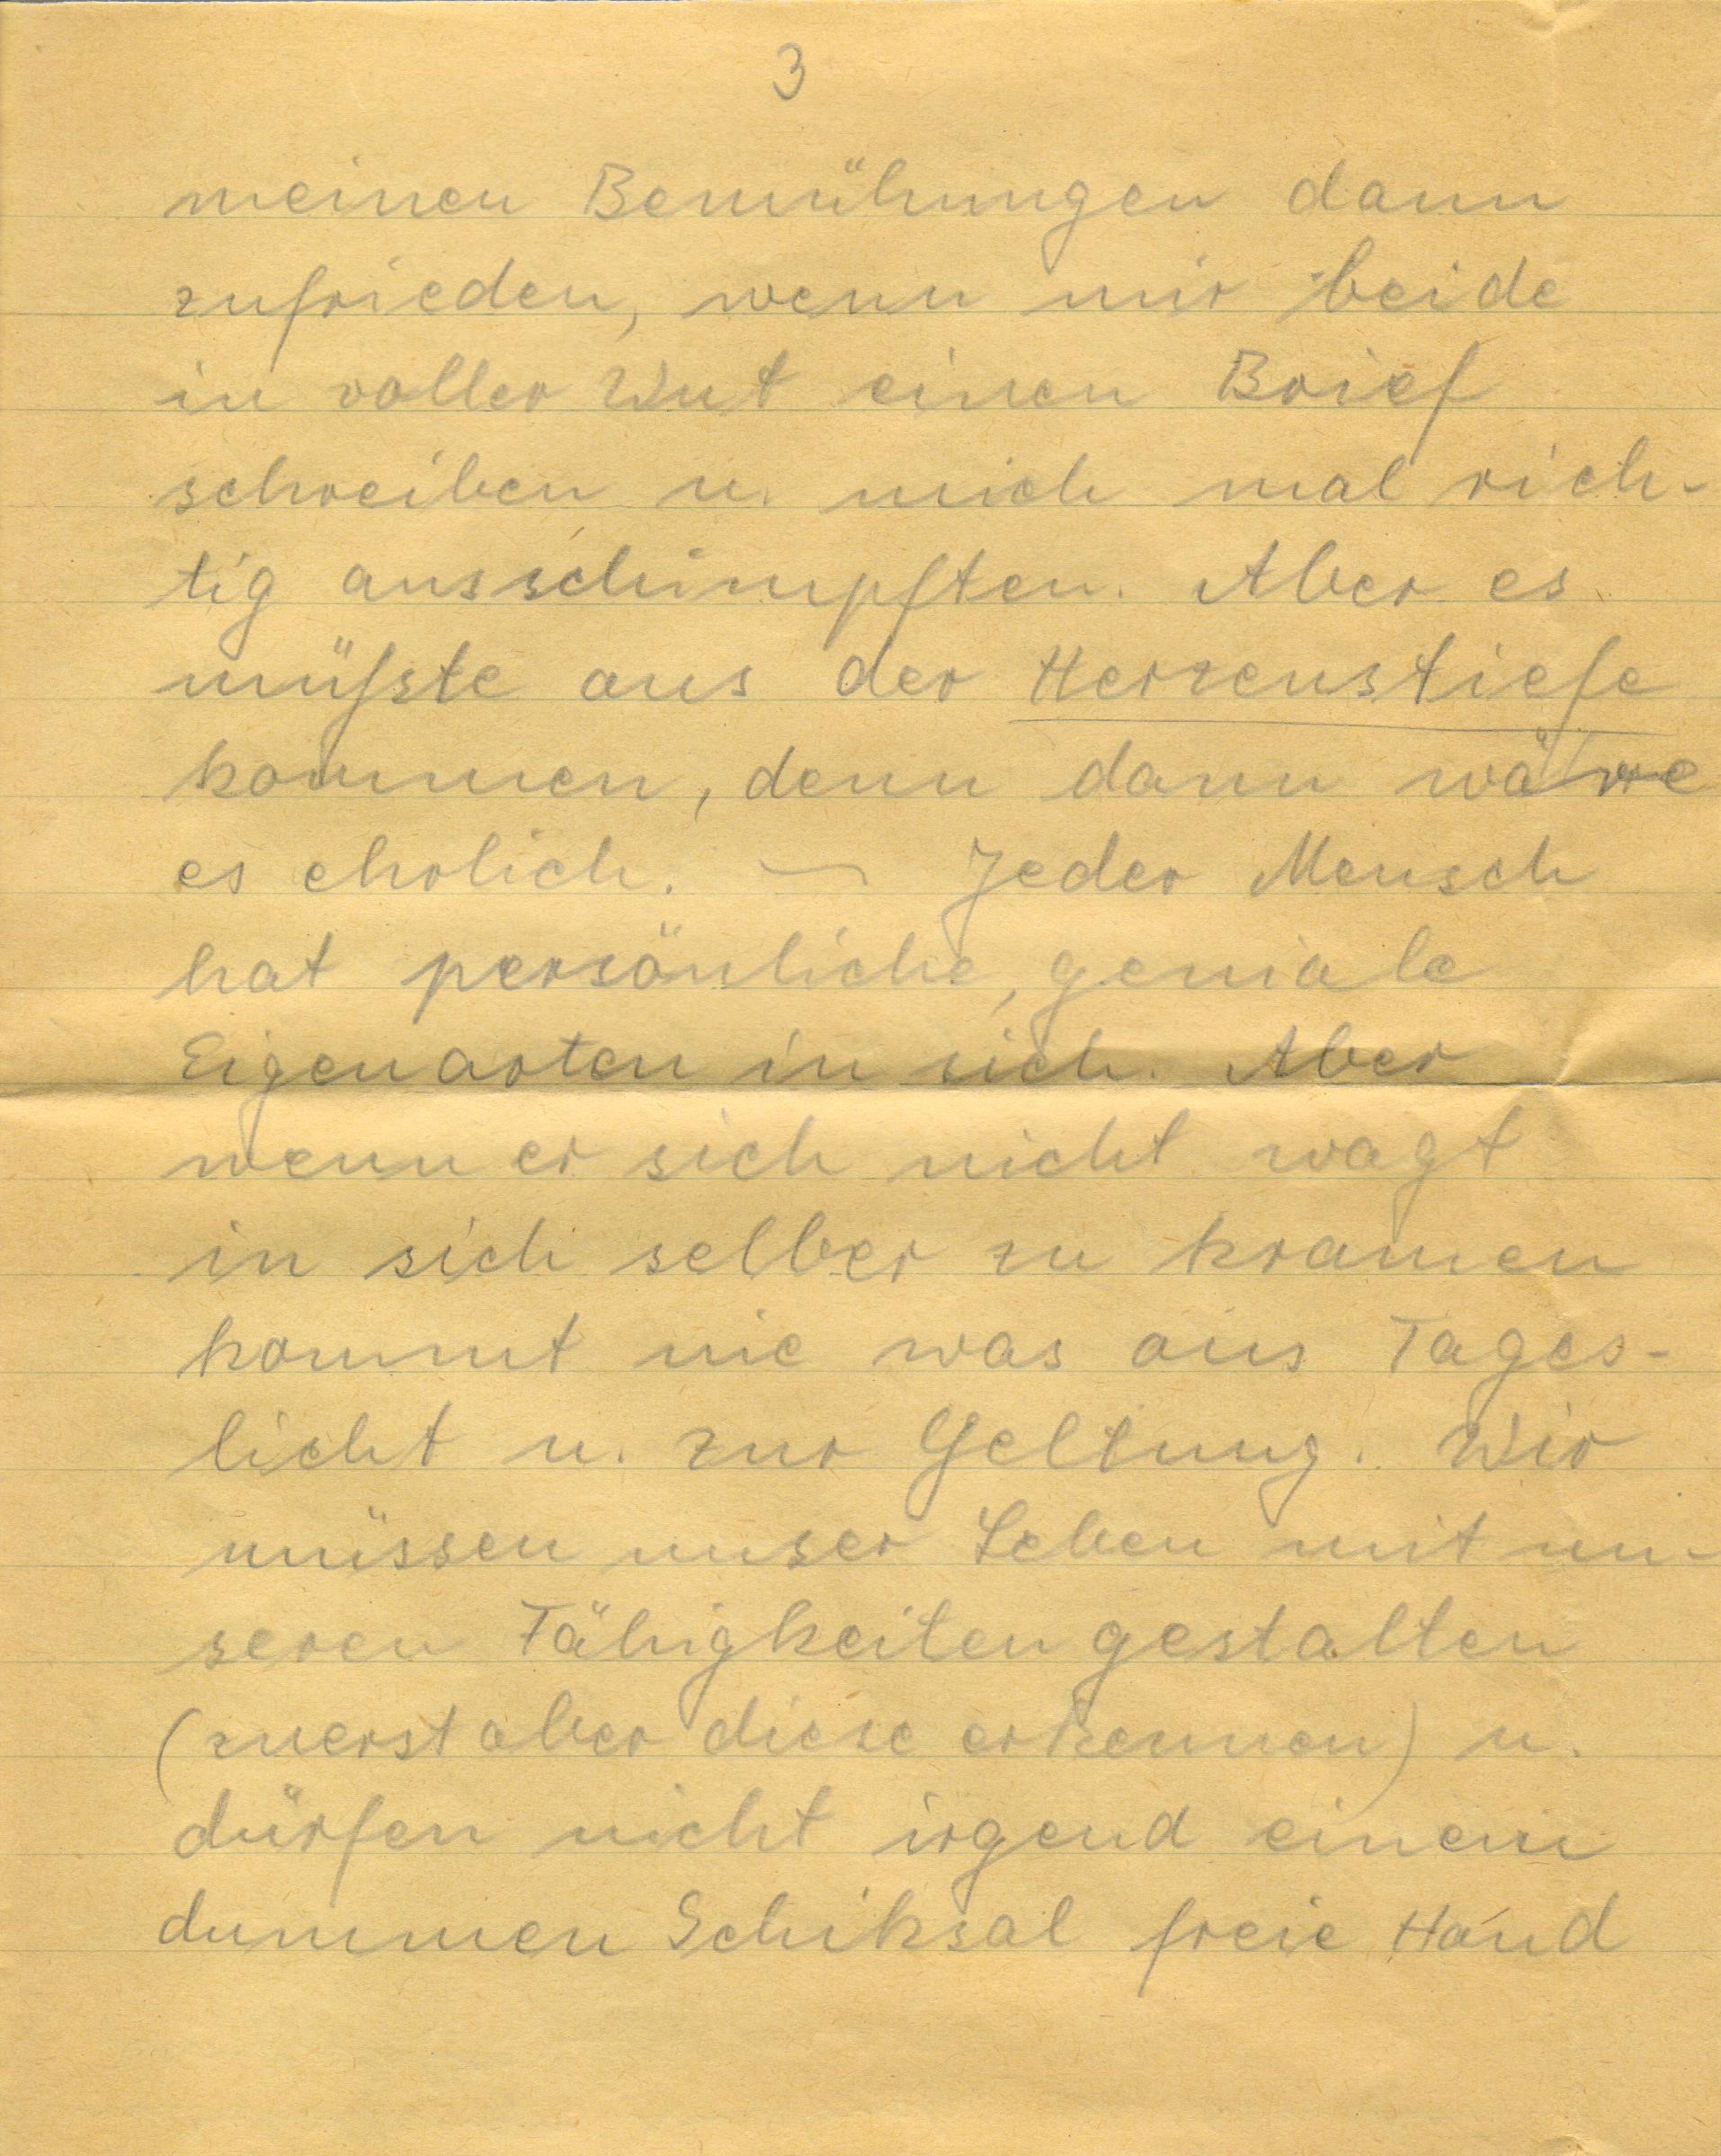 3
meinen Bemühungen dann
zufrieden, wenn mir beide
in voller Wut einen Brief
schreiben u. mich mal rich-
tig ausschimpften. Aber es
müßte aus der Herzenstiefe
kommen, denn dann wäre
es ehrlich. — Jeder Mensch
hat persönliche, geniale
Eigenarten in sich. Aber
wenn er sich nicht wagt
in sich selber zu kramen
kommt nie was ans Tages-
licht u. zur Geltung. Wir
müssen unser Leben mit un-
seren Fähigkeiten gestalten
(zuerst aber diese erkennen) u.
dürfen nicht irgend einem
dummen Schiksal freie Hand